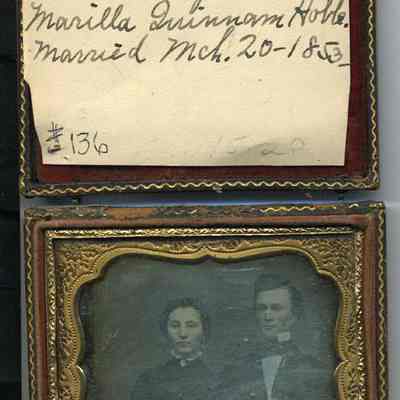 Marilla Quinnam Hobbs.
Married Mch. 20-1853
# 136
15-20